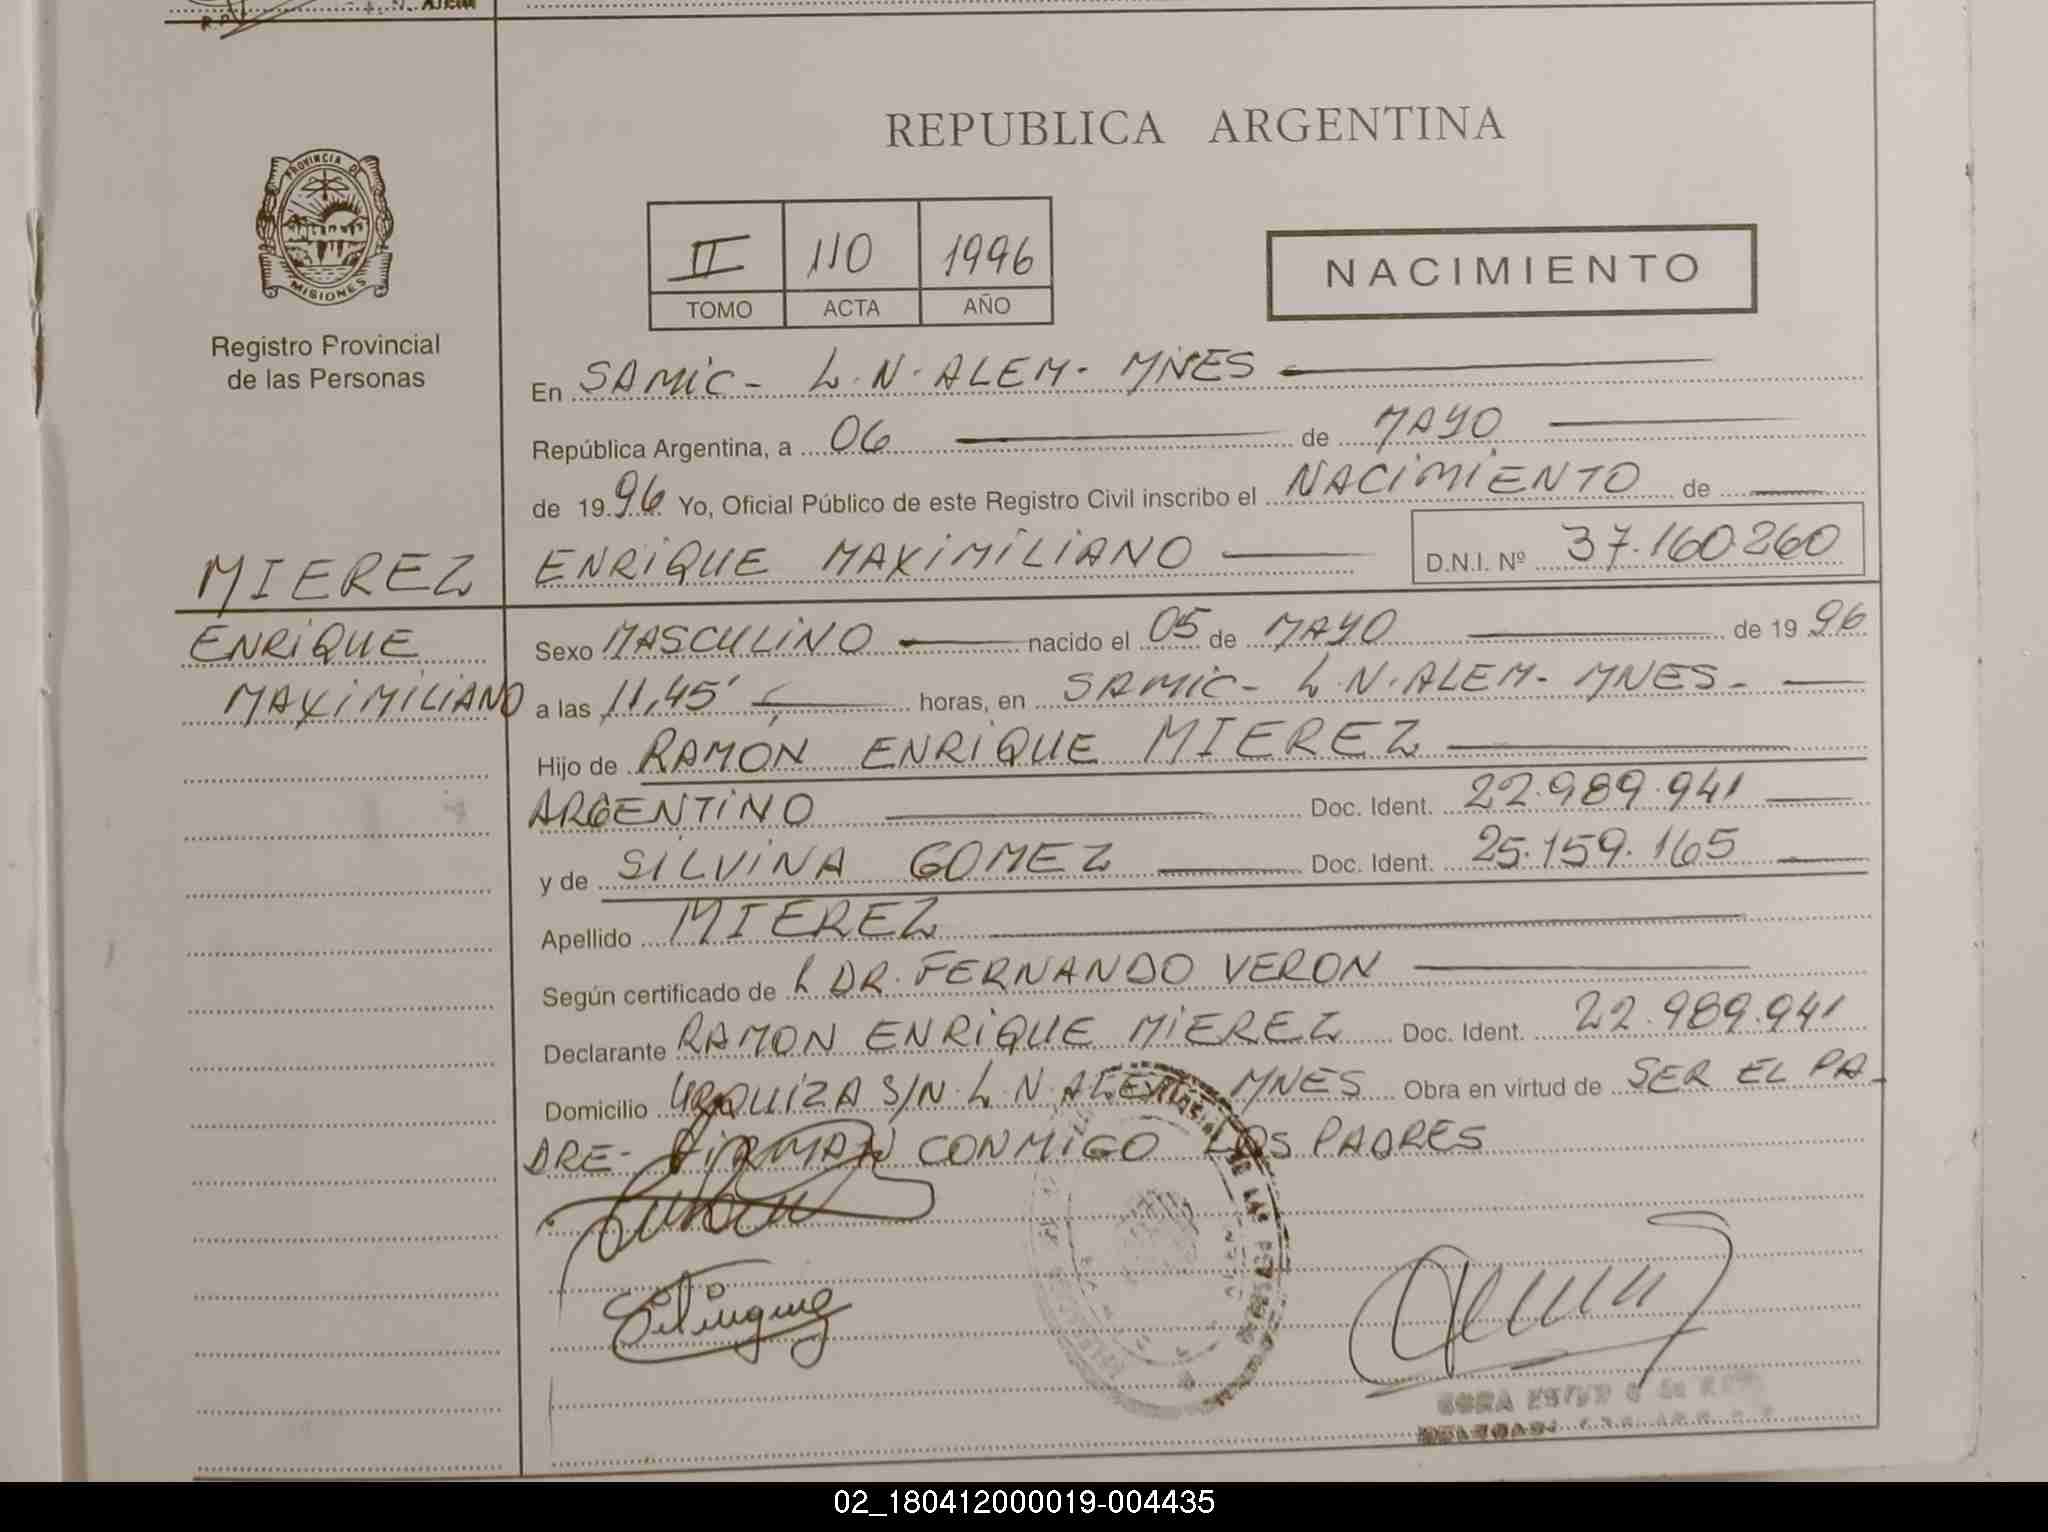 REPUBLICA ARGENTINA
PROVINCIA DE
MISIONES
Registro Provincial
de las Personas
II 110 1996
TOMO ACTA AÑO
NACIMIENTO
En SAMIC - L.N. ALEM - MNES
República Argentina, a 06 de MAYO
de 1996 Yo, Oficial Público de este Registro Civil inscribo el NACIMIENTO de
ENRIQUE MAXIMILIANO D.N.I. Nº 37.160.260
MIEREZ
ENRIQUE
MAXIMILIANO
Sexo MASCULINO nacido el 05 de MAYO de 1996
a las 11,45' horas, en SAMIC - L.N. ALEM - MNES -
Hijo de RAMÓN ENRIQUE MIEREZ
ARGENTINO Doc. Ident. 22.989.941
y de SILVINA GOMEZ Doc. Ident. 25.159.165
Apellido MIEREZ
Según certificado de L DR. FERNANDO VERON
Declarante RAMON ENRIQUE MIEREZ Doc. Ident. 22.989.941
Domicilio URQUIZA S/N. L.N. ALEM MNES Obra en virtud de SER EL PA-
DRE - FIRMAN CONMIGO LOS PADRES
02_180412000019-004435